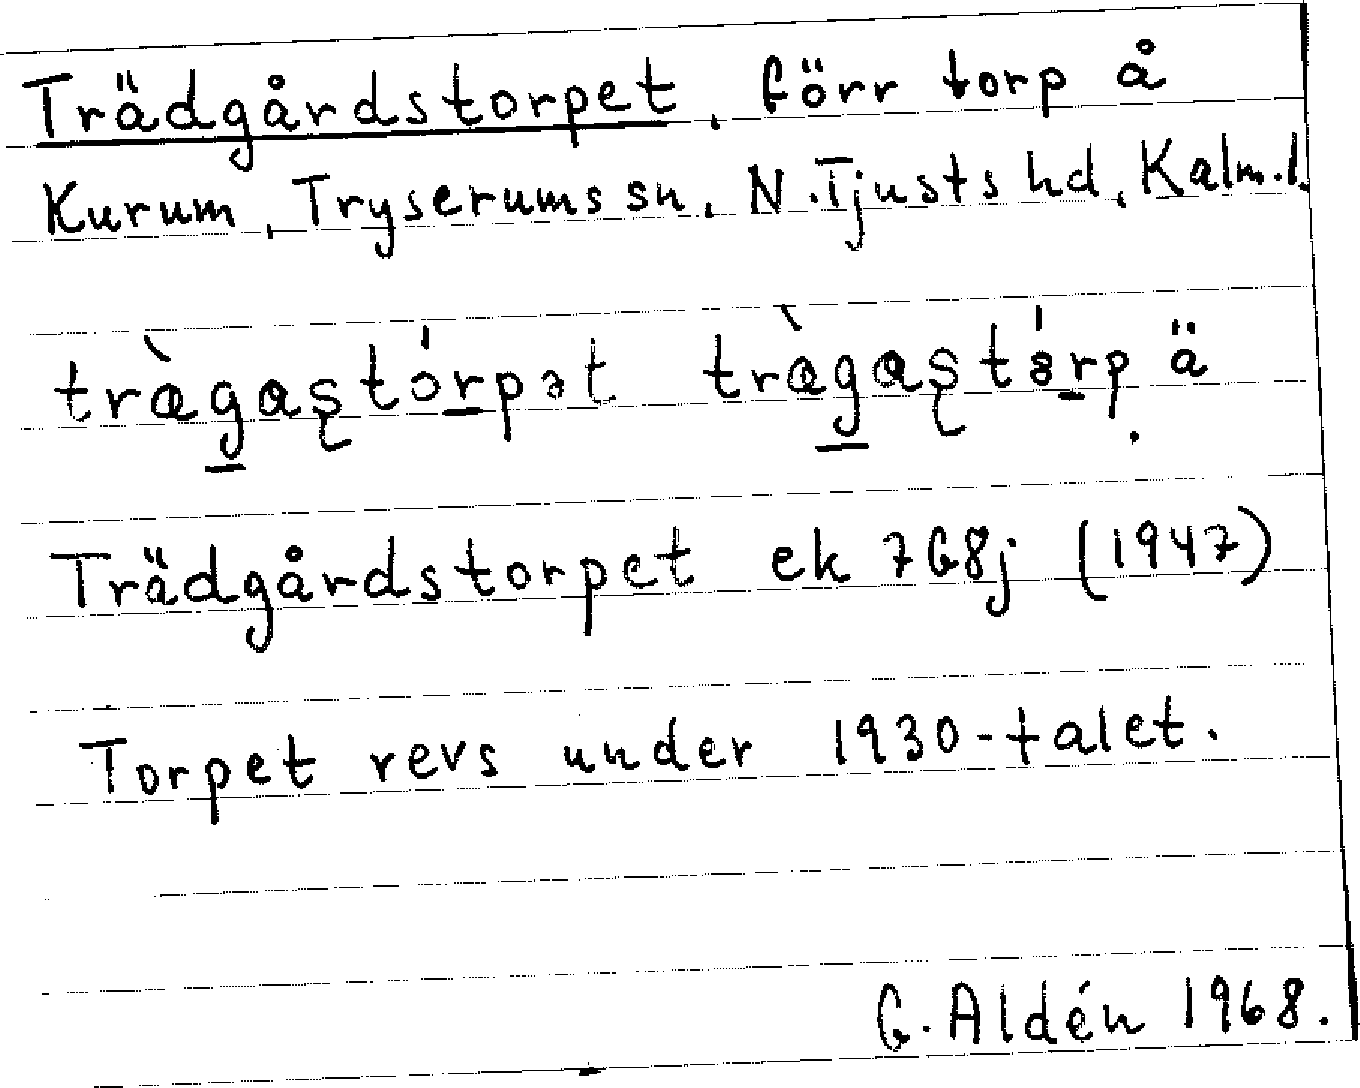 Trädgårdstorpet, förr torp å
Kurum, Tryserums sn, N. Tjusts hd, Kalm. l.
trägaştórpət trägaştórp ä
Trädgårdstorpet ek 7G8j (1947)
Torpet revs under 1930-talet.
G. Aldén 1968.